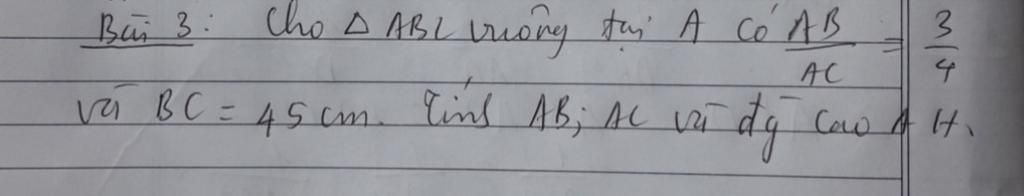 Bài 3: Cho △ ABC vuông tại A có AB/AC = 3/4
và BC = 45 cm. Tính AB; AC và đg cao AH.